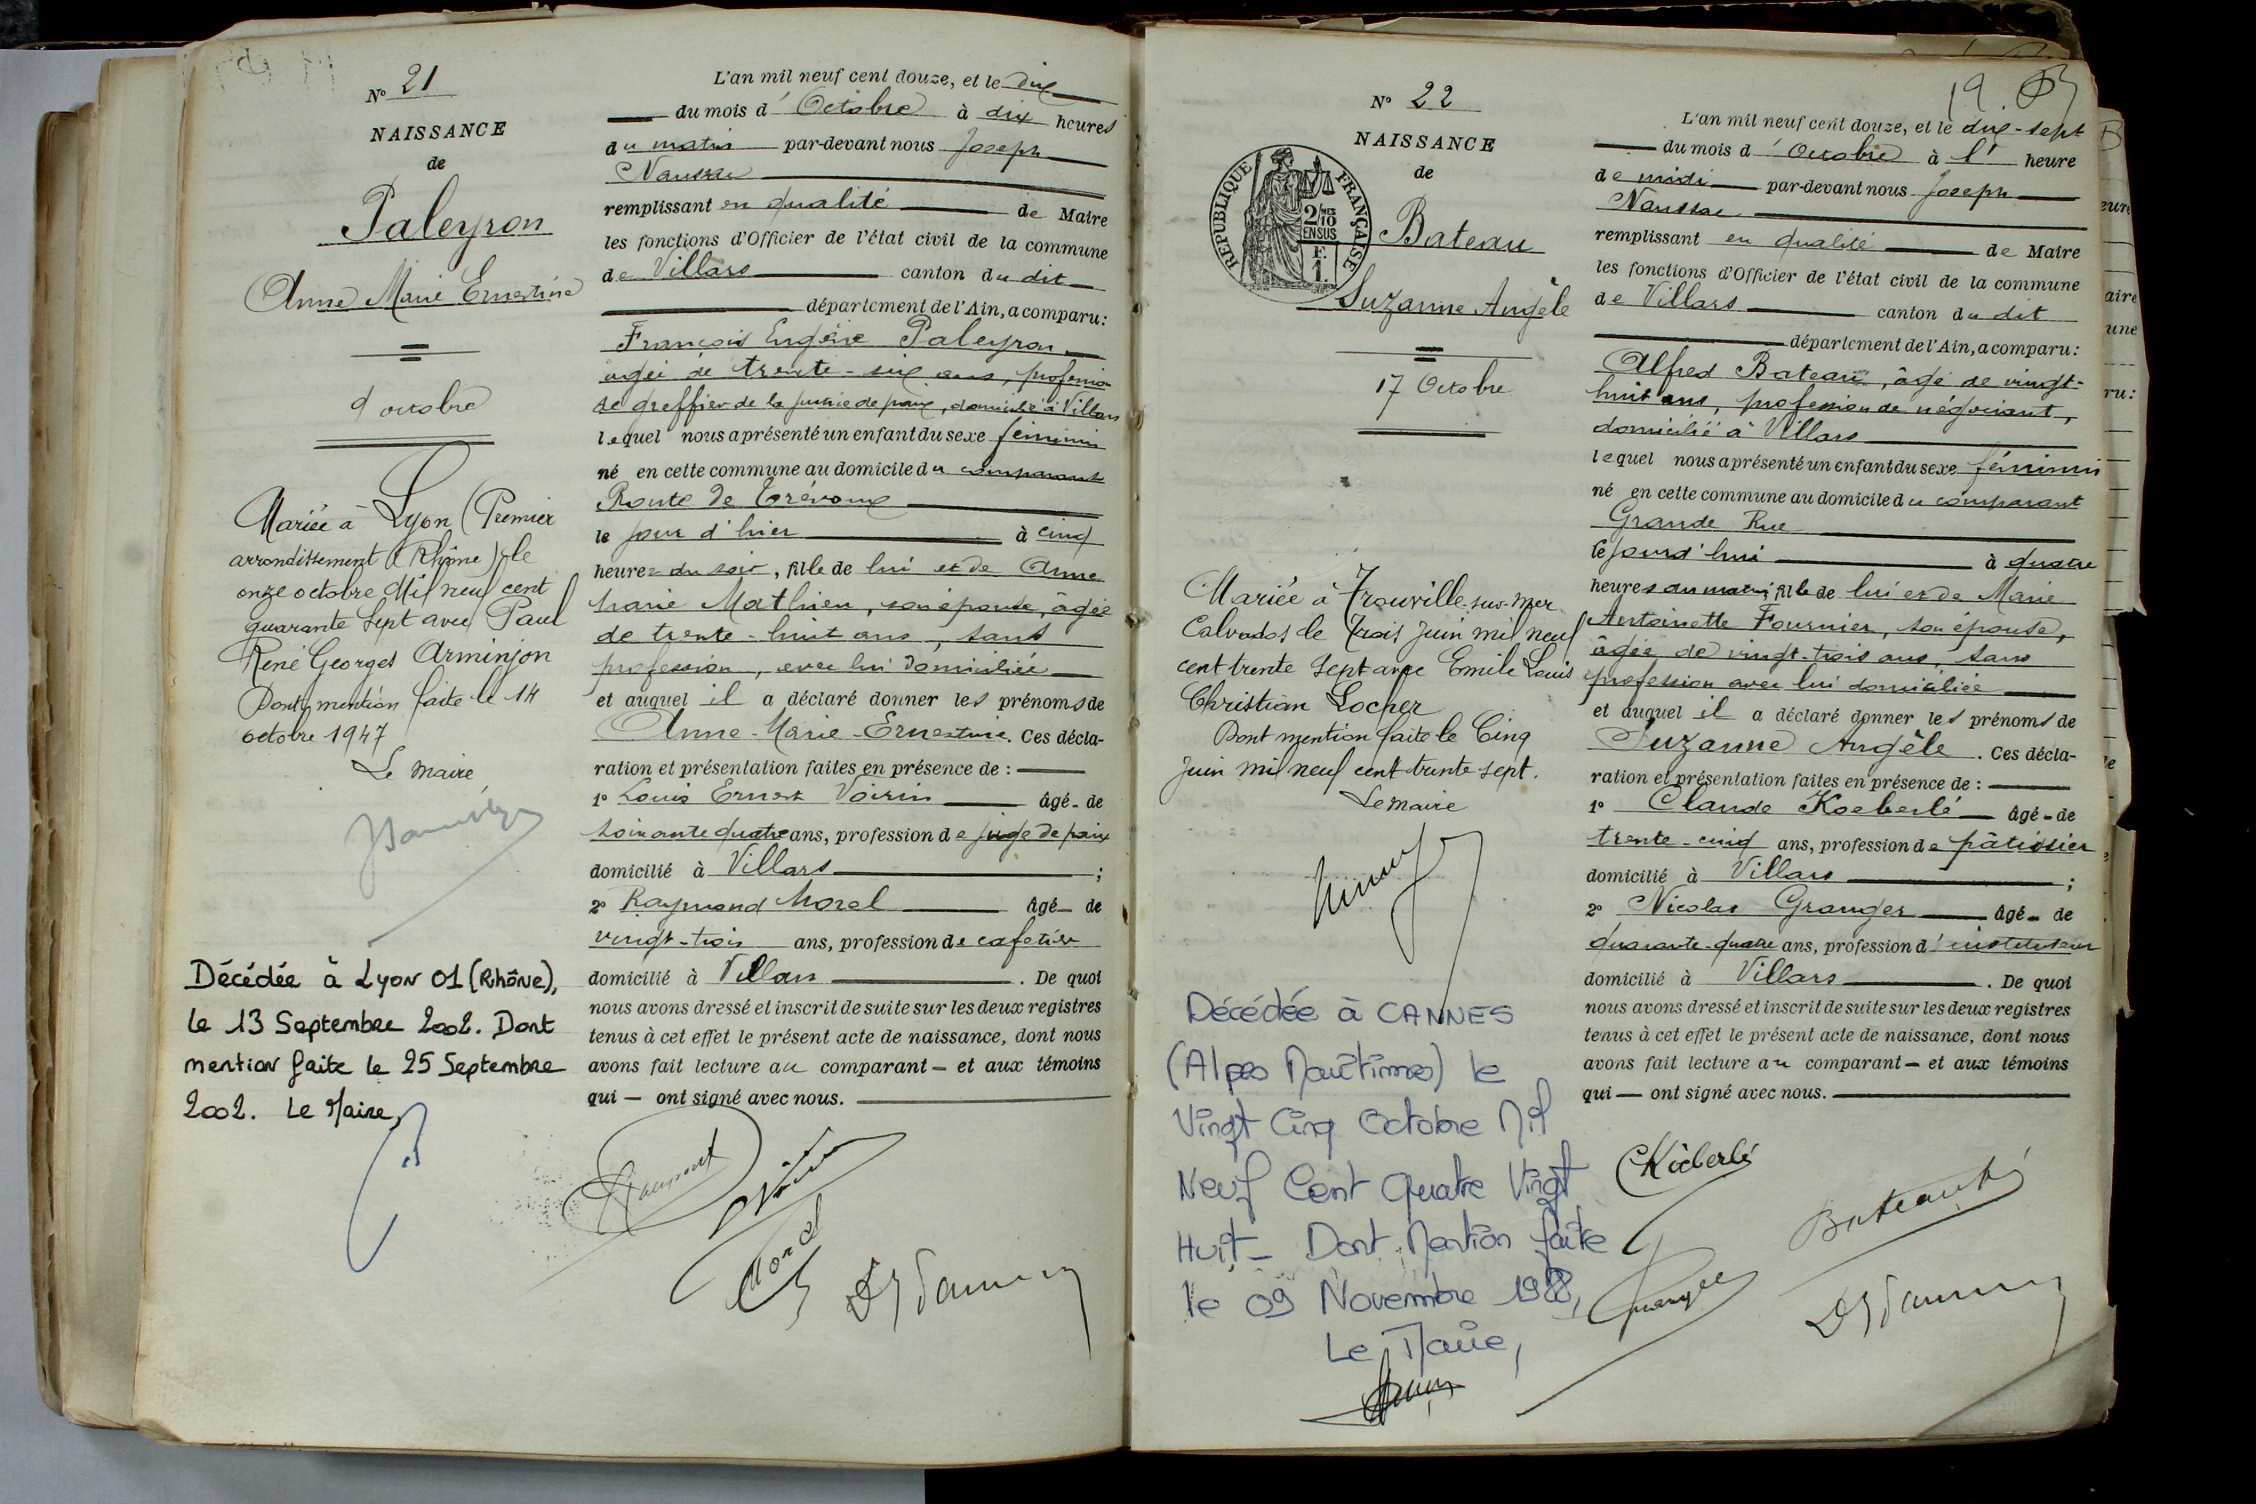 N° 21
NAISSANCE
de
Paleyron
Anne Marie Ernestine
9 octobre
Mariée à Lyon (Premier
arrondissement (Rhône) le
onze octobre Mil neuf cent
quarante Sept avec Paul
René Georges Arminjon
Dont mention faite le 14
octobre 1947
Le Maire
Décédée à Lyon 01 (Rhône),
le 13 Septembre 2002. Dont
mention faite le 25 Septembre
2002. Le Maire,
L'an mil neuf cent douze, et le dix
du mois d'Octobre à dix heures
du matin par-devant nous Joseph
remplissant en qualité de Maire
les fonctions d'Officier de l'état civil de la commune
de Villars canton du dit
département de l'Ain, a comparu:
François Eugène Paleyron
âgé de trente-six ans, profession
de greffier de la justice de paix, domicilié à Villars
lequel nous a présenté un enfant du sexe féminin
né en cette commune au domicile du comparant
Route de Trévoux
le jour d'hier à cinq
heures du soir, fille de lui et de Anne
Marie Mathieu, son épouse, âgée
de trente-huit ans, sans
profession, avec lui domiciliée
et auquel il a déclaré donner les prénoms de
Anne-Marie-Ernestine. Ces décla-
ration et présentation faites en présence de :
1° Louis Ernest Voirin âgé de
soixante quatre ans, profession de juge de paix
domicilié à Villars ;
2° Raymond Morel âgé de
vingt-trois ans, profession de cafetier
domicilié à Villars. De quoi
nous avons dressé et inscrit de suite sur les deux registres
tenus à cet effet le présent acte de naissance, dont nous
avons fait lecture au comparant et aux témoins
qui ont signé avec nous.
Morel
N° 22
NAISSANCE
de
RÉPUBLIQUE FRANÇAISE
2/10 MES
EN SUS
F.
1.
Bateau
Suzanne Angèle
17 Octobre
Mariée à Trouville-sur-mer
Calvados le trois Juin mil neuf
cent trente sept avec Emile Louis
Christian Locher
Dont mention faite le Cinq
Juin mil neuf cent trente sept.
Le maire
Décédée à CANNES
(Alpes Maritimes) le
Vingt Cinq Octobre Mil
Neuf Cent Quatre Vingt
Huit - Dont Mention faite
le 09 Novembre 1988,
Le Maire,
19.
L'an mil neuf cent douze, et le dix-sept
du mois d'Octobre à l' heure
de midi par-devant nous Joseph
remplissant en qualité de Maire
les fonctions d'Officier de l'état civil de la commune
de Villars canton du dit
département de l'Ain, a comparu:
Alfred Bateau, âgé de vingt-
huit ans, profession de négociant,
domicilié à Villars
lequel nous a présenté un enfant du sexe féminin
né en cette commune au domicile du comparant
Grande Rue
le jourd'hui à quatre
heures du matin, fille de lui et de Marie
Antoinette Fournier, son épouse,
âgée de vingt-trois ans, sans
profession avec lui domiciliée
et auquel il a déclaré donner les prénoms de
Suzanne Angèle. Ces décla-
ration et présentation faites en présence de :
1° Claude Koeberlé âgé de
trente-cinq ans, profession de pâtissier
domicilié à Villars ;
2° Nicolas Granger âgé de
quarante-quatre ans, profession d'instituteur
domicilié à Villars. De quoi
nous avons dressé et inscrit de suite sur les deux registres
tenus à cet effet le présent acte de naissance, dont nous
avons fait lecture au comparant et aux témoins
qui ont signé avec nous.